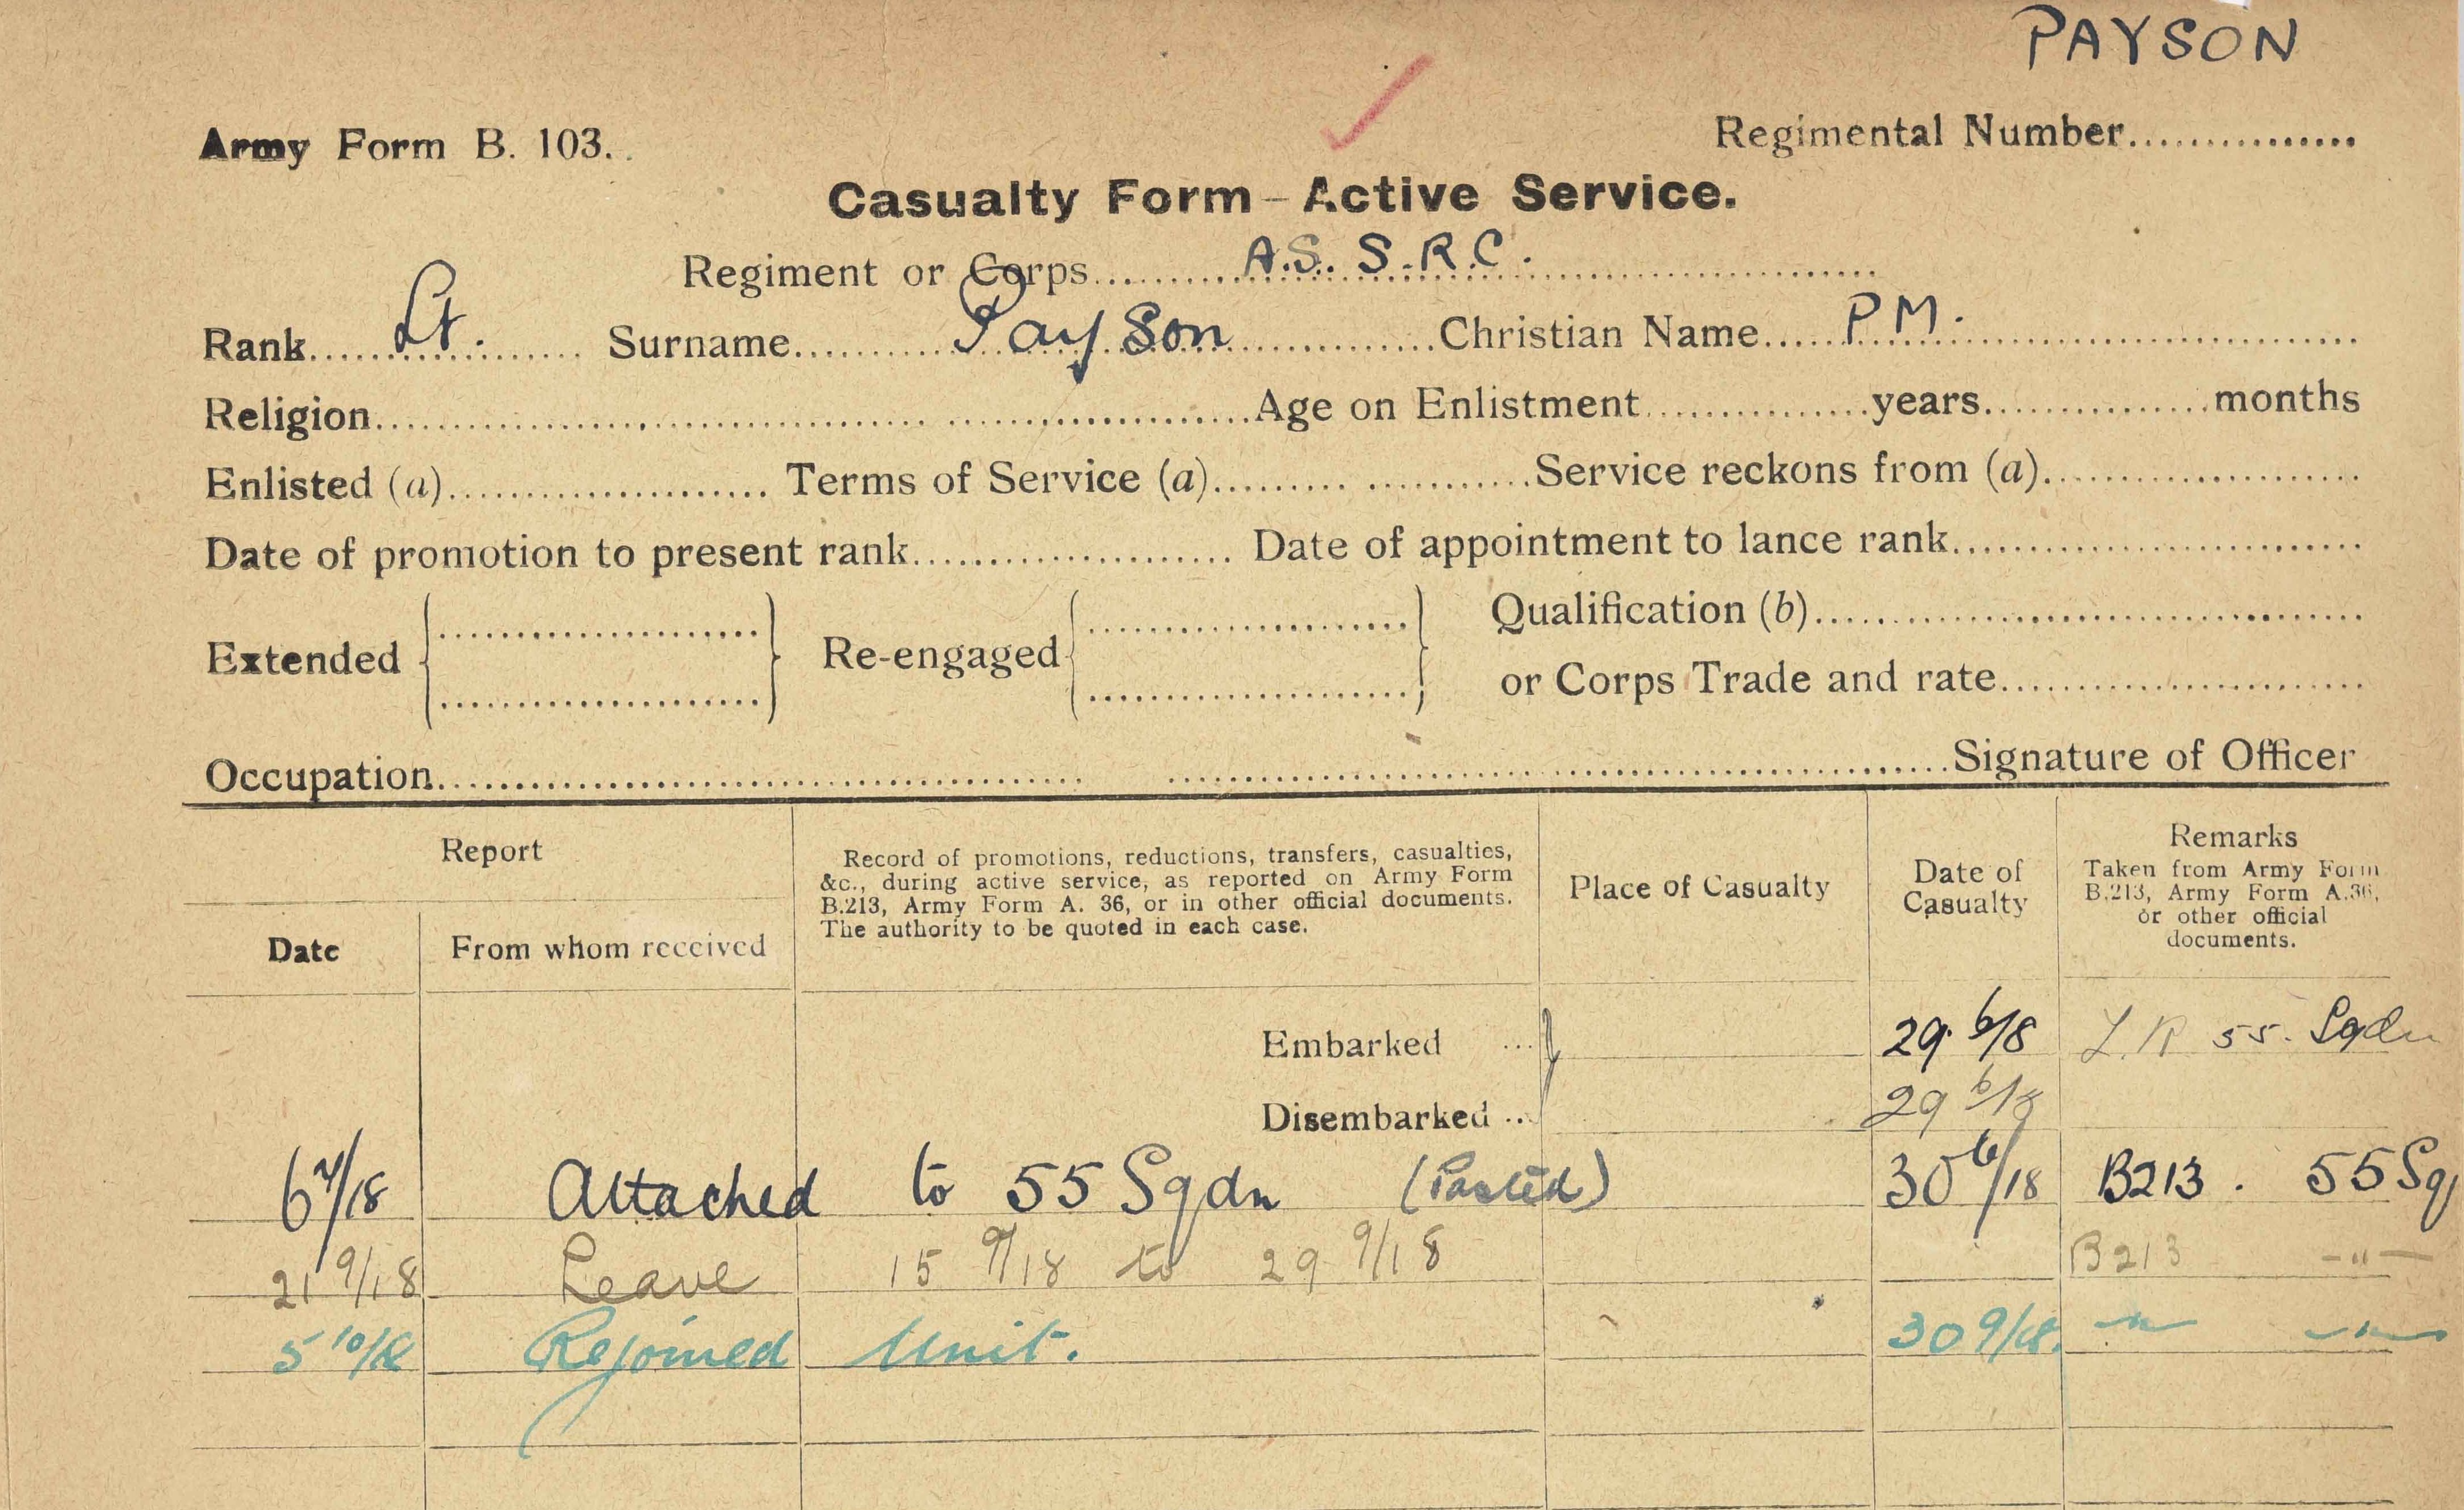 PAYSON
Army Form B. 103.
Regimental Number
Casualty Form - Active Service.
Regiment or Corps A.S. S.R.C.
Rank Lt. Surname Payson Christian Name P.M.
Religion Age on Enlistment years months
Enlisted (a) Terms of Service (a) Service reckons from (a)
Date of promotion to present rank Date of appointment to lance rank
Extended Re-engaged Qualification (b)
or Corps Trade and rate
Occupation Signature of Officer
Report
Date
From whom received
Record of promotions, reductions, transfers, casualties,
&c., during active service, as reported on Army Form
B.213, Army Form A. 36, or in other official documents.
The authority to be quoted in each case.
Place of Casualty
Date of
Casualty
Remarks
Taken from Army Form
B.213, Army Form A.36,
or other official
documents.
Embarked 29 6/8 L.R 55. Sqdn
Disembarked 29 6/18
6 7/18 Attached to 55 Sqdn (Posted) 30 6/18 B213. 55 Sq
21 9/18 Leave 15 9/18 to 29 9/18 B213 -"-
5 10/18 Rejoined Unit. 30 9/18. -"- -"-